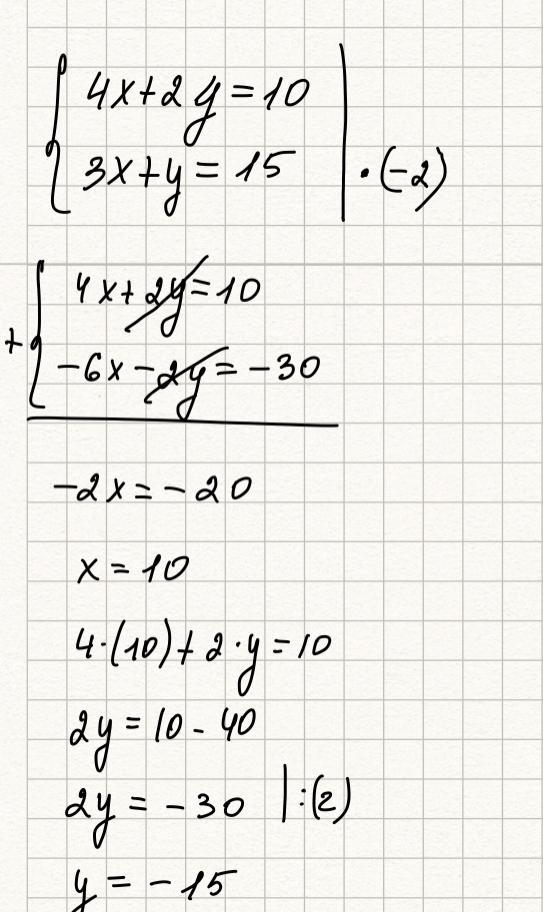 4x+2y=10
3x+y=15 | ·(-2)
4x+2y=10
+
-6x-2y=-30
-2x=-20
x=10
4·(10)+2·y=10
2y=10-40
2y=-30 |:(2)
y=-15